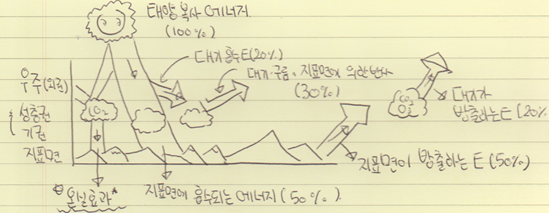 태양 복사 에너지
(100%)
대기 흡수E(20%)
대기·구름, 지표면에 의한 반사
(30%)
우주(외권)
성층권
기권
지표면
CO₂
대기가
방출하는 E (20%
지표면이 방출하는 E (50%)
온실효과*
지표면에 흡수되는 에너지 (50%)